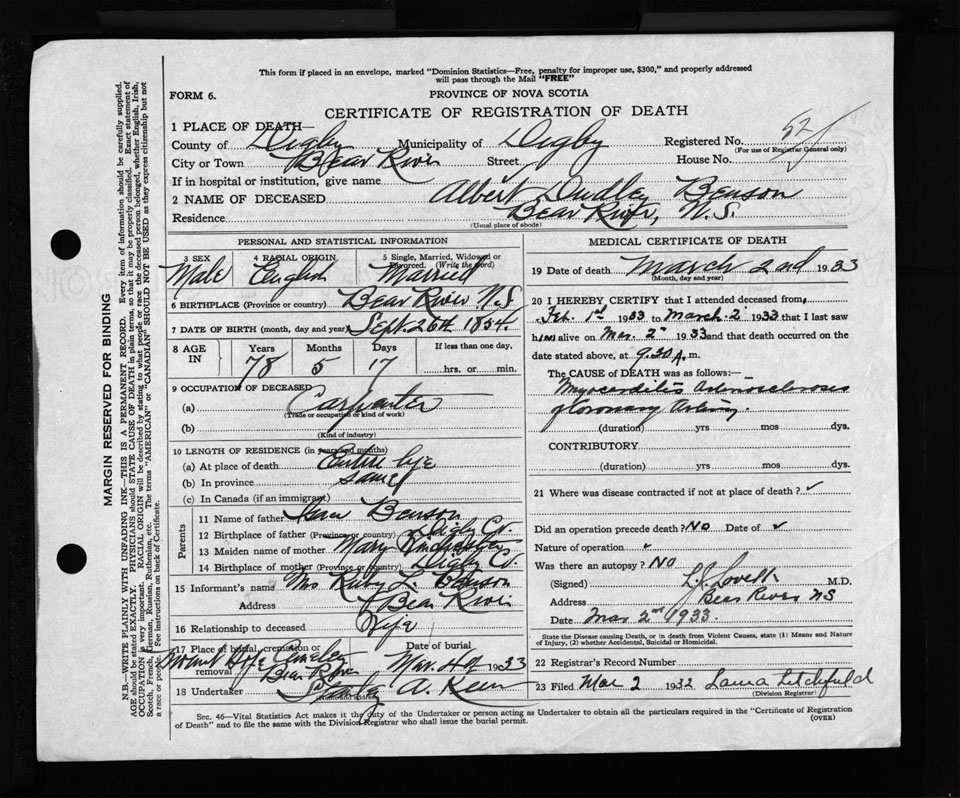 This form if placed in an envelope, marked "Dominion Statistics—Free, penalty for improper use, $300," and properly addressed
will pass through the Mail "FREE"
FORM 6.
PROVINCE OF NOVA SCOTIA
CERTIFICATE OF REGISTRATION OF DEATH
1 PLACE OF DEATH—
County of Digby Municipality of Digby Registered No. 52
(For use of Registrar General only)
City or Town Bear River Street House No.
If in hospital or institution, give name
2 NAME OF DECEASED Albert Dudley Benson
Residence Bear River, N.S.
(Usual place of abode)
MARGIN RESERVED FOR BINDING
N.B.—WRITE PLAINLY WITH UNFADING INK—THIS IS A PERMANENT RECORD. Every item of information should be carefully supplied.
AGE should be stated EXACTLY. PHYSICIANS should STATE CAUSE OF DEATH in plain terms so that it may be properly classified. Exact statement of
OCCUPATION is very important. RACIAL ORIGIN will be described by stating to what people or race the deceased person belonged, whether English, Irish,
Scotch, French, German, Russian, Ruthenian, etc. The terms "AMERICAN" or "CANADIAN" SHOULD NOT BE USED as they express citizenship but not
a race or people. See instructions on back of Certificate.
PERSONAL AND STATISTICAL INFORMATION
3 SEX 4 RACIAL ORIGIN 5 Single, Married, Widowed or
Divorced. (Write the word)
Male English Married
6 BIRTHPLACE (Province or country) Bear River N.S
7 DATE OF BIRTH (month, day and year) Sept. 26th 1854.
8 AGE IN Years Months Days If less than one day,
78 5 17 hrs. or min.
9 OCCUPATION OF DECEASED
(a) Carpenter
(Trade or occupation or kind of work)
(b)
(Kind of industry)
10 LENGTH OF RESIDENCE (in years and months)
(a) At place of death Entire life
(b) In province same
(c) In Canada (if an immigrant)
Parents
11 Name of father Benson
12 Birthplace of father (Province or country) Digby Co.
13 Maiden name of mother Mary
14 Birthplace of mother (Province or country) Digby Co.
15 Informant's name Mrs Ruby L. Benson
Address Bear River
16 Relationship to deceased Wife
17 Place of burial, cremation or removal Date of burial
Mount Hope
Bear River Mar. 4th 1933
18 Undertaker A.
MEDICAL CERTIFICATE OF DEATH
19 Date of death March 2nd 1933
(Month, day and year)
20 I HEREBY CERTIFY that I attended deceased from
Feb. 1st 1933 to March 2 1933 that I last saw
him alive on Mar. 2nd 1933 and that death occurred on the
date stated above, at 9.30 A. m.
The CAUSE of DEATH was as follows:—
Myocarditis
of Coronary
(duration) yrs mos dys.
CONTRIBUTORY
(duration) yrs mos dys.
21 Where was disease contracted if not at place of death? ✓
Did an operation precede death? NO Date of ✓
Nature of operation ✓
Was there an autopsy? NO
(Signed) L.J. Lovett M.D.
Address Bear River NS
Date Mar 2nd 1933.
State the Disease causing Death, or in death from Violent Causes, state (1) Means and Nature
of Injury, (2) whether Accidental, Suicidal or Homicidal.
22 Registrar's Record Number
23 Filed Mar 2 1932 Laura Litchfield
(Division Registrar)
Sec. 46—Vital Statistics Act makes it the duty of the Undertaker or person acting as Undertaker to obtain all the particulars required in the "Certificate of Registration
of Death" and to file the same with the Division Registrar who shall issue the burial permit.
(OVER)